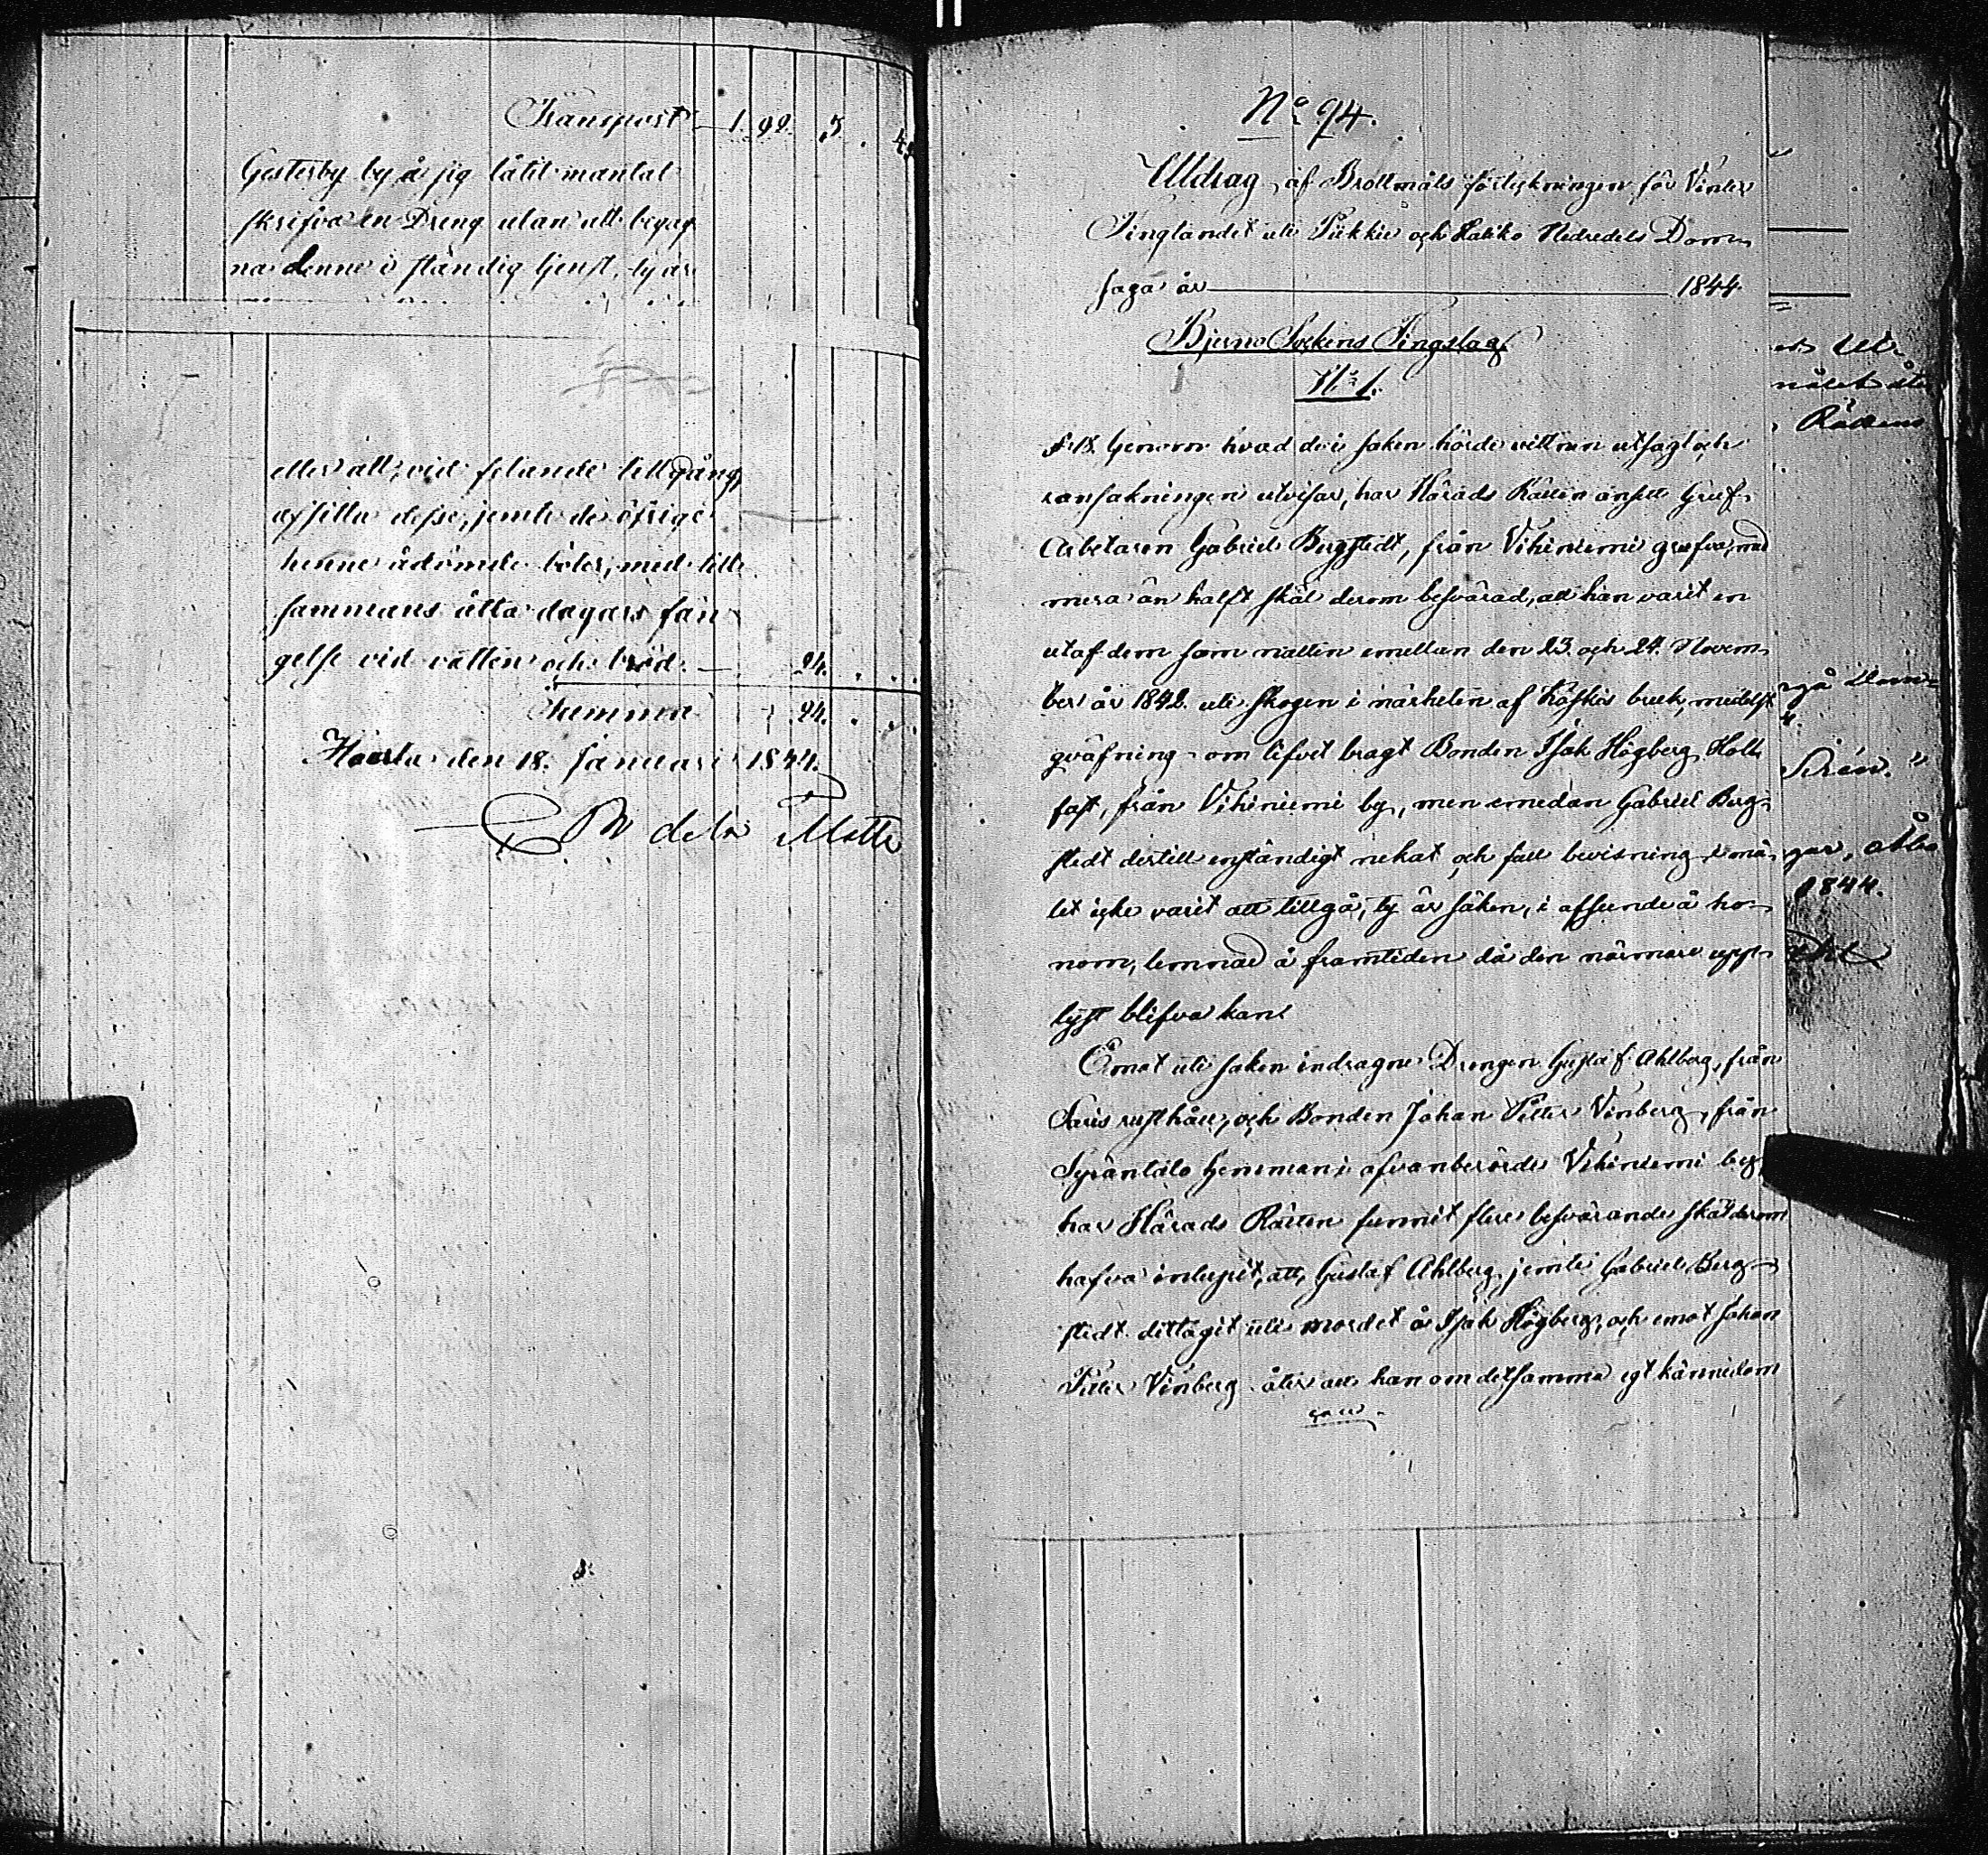 Transport 1. 92. 5. 4.
Gesterby by å sig låtit mantal
skrifva en Dreng utan att begag
na denne i ständig tjenst, ty är
eller att, vid felande tillgång,
afsitta desse, jemte de öfrige
henne ådömde böter, med till
sammans åtta dagars fän
gelse vid vatten och bröd. 24.
Summa 24.
Haerla den 18. Januari 1844.
de la Motte
No 94.
Utdrag af Brottmåls förtekningen för Vinter
Tinglandet uti Pükkie och Haliko Nedredels Dom
saga år 1844
Bjerno Sockens Tingslag
No 1.
§ 18. Genom hvad de i saken hörde vittnen utsagt och
ransakningen utvisar, har Härads Rätten ansett Gruf
Arbetaren Gabriel Bergstedt, från Vihiniemi grufva, med
mera än halft skäl derom besvärad, att han varit en
utaf dem som natten emellan den 23. och 24. Novem
ber år 1842. uti skogen i närheten af Koskis bruk, medelst
qväfning om lifvet bragt Bonden Isak Högberg Holl
fast, från Vihiniemi by, men emedan Gabriel Berg
stedt dertill enständigt nekat och full bevisning i må
let icke varit att tillgå, ty är saken, i afseende å ho
nom, lemnad å framtiden då den närmare upp
lyst blifva kan.
Emot uti saken indragne Drengen Gustaf Ahlberg, från
Saris rusthåll, och Bonden Johan Petter Vinberg, från
Syväntalo hemman i ofvanberörde Vihiniemi by,
har Härads Rätten funnit flere besvärande skäl derom
hafva inlupit, att, Gustaf Ahlberg, jemte Gabriel Berg
stedt deltagit uti mordet å Isak Högberg, och emot Johan
Petter Vinberg åter att han om detsamma egt kännedom
målet åter
Rättens
Åbo
1844.